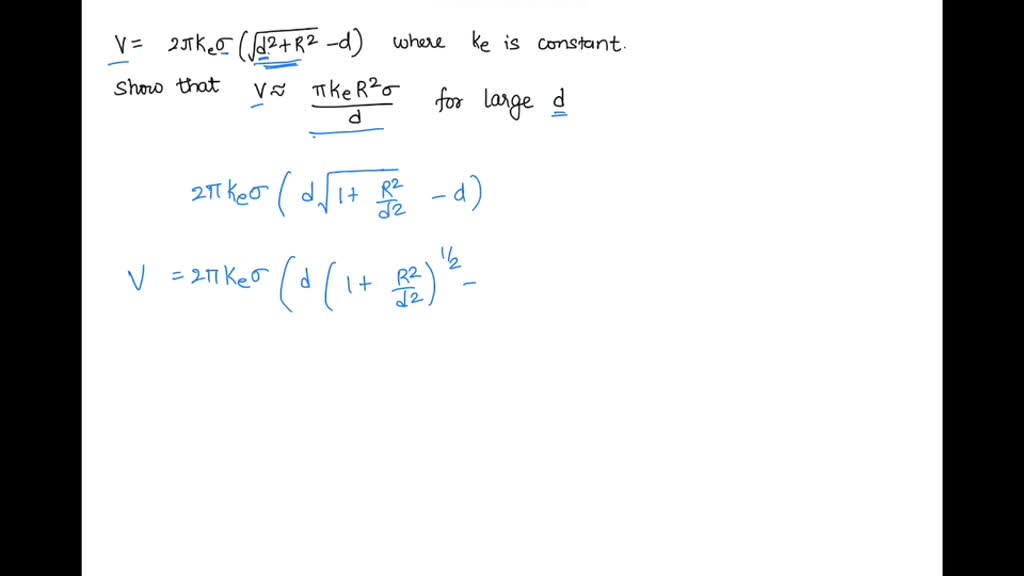 V= 2πkeσ(√d²+R² -d) where ke is constant.
Show that V≈ πkeR²σ/d for large d
2πkeσ(d√1+ R²/d² -d)
V =2πkeσ(d(1+ R²/d²)^1/2 -